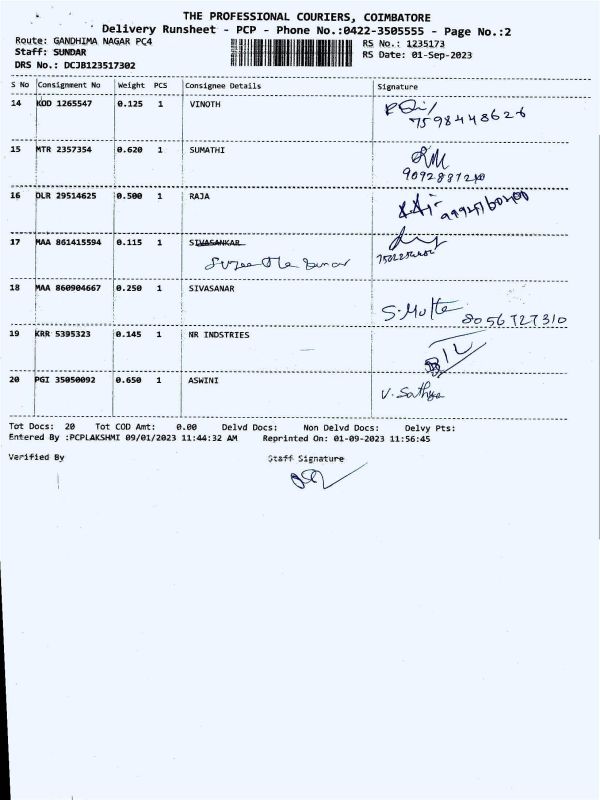 THE PROFESSIONAL COURIERS, COIMBATORE
Delivery Runsheet - PCP - Phone No.:0422-3505555 - Page No.:2
Route: GANDHIMA NAGAR PC4 RS No.: 1235173
Staff: SUNDAR RS Date: 01-Sep-2023
DRS No.: DCJB123517302
S No Consignment No Weight PCS Consignee Details Signature
14 KOD 1265547 0.125 1 VINOTH
7598448626
15 MTR 2357354 0.620 1 SUMATHI
16 DLR 29514625 0.500 1 RAJA
17 MAA 861415594 0.115 1 SIVASANKAR
18 MAA 860904667 0.250 1 SIVASANAR
S. Mutte 8056727310
19 KRR 5395323 0.145 1 NR INDSTRIES
20 PGI 35050092 0.650 1 ASWINI
V. Sathya
Tot Docs: 20 Tot COD Amt: 0.00 Delvd Docs: Non Delvd Docs: Delvy Pts:
Entered By :PCPLAKSHMI 09/01/2023 11:44:32 AM Reprinted On: 01-09-2023 11:56:45
Verified By Staff Signature